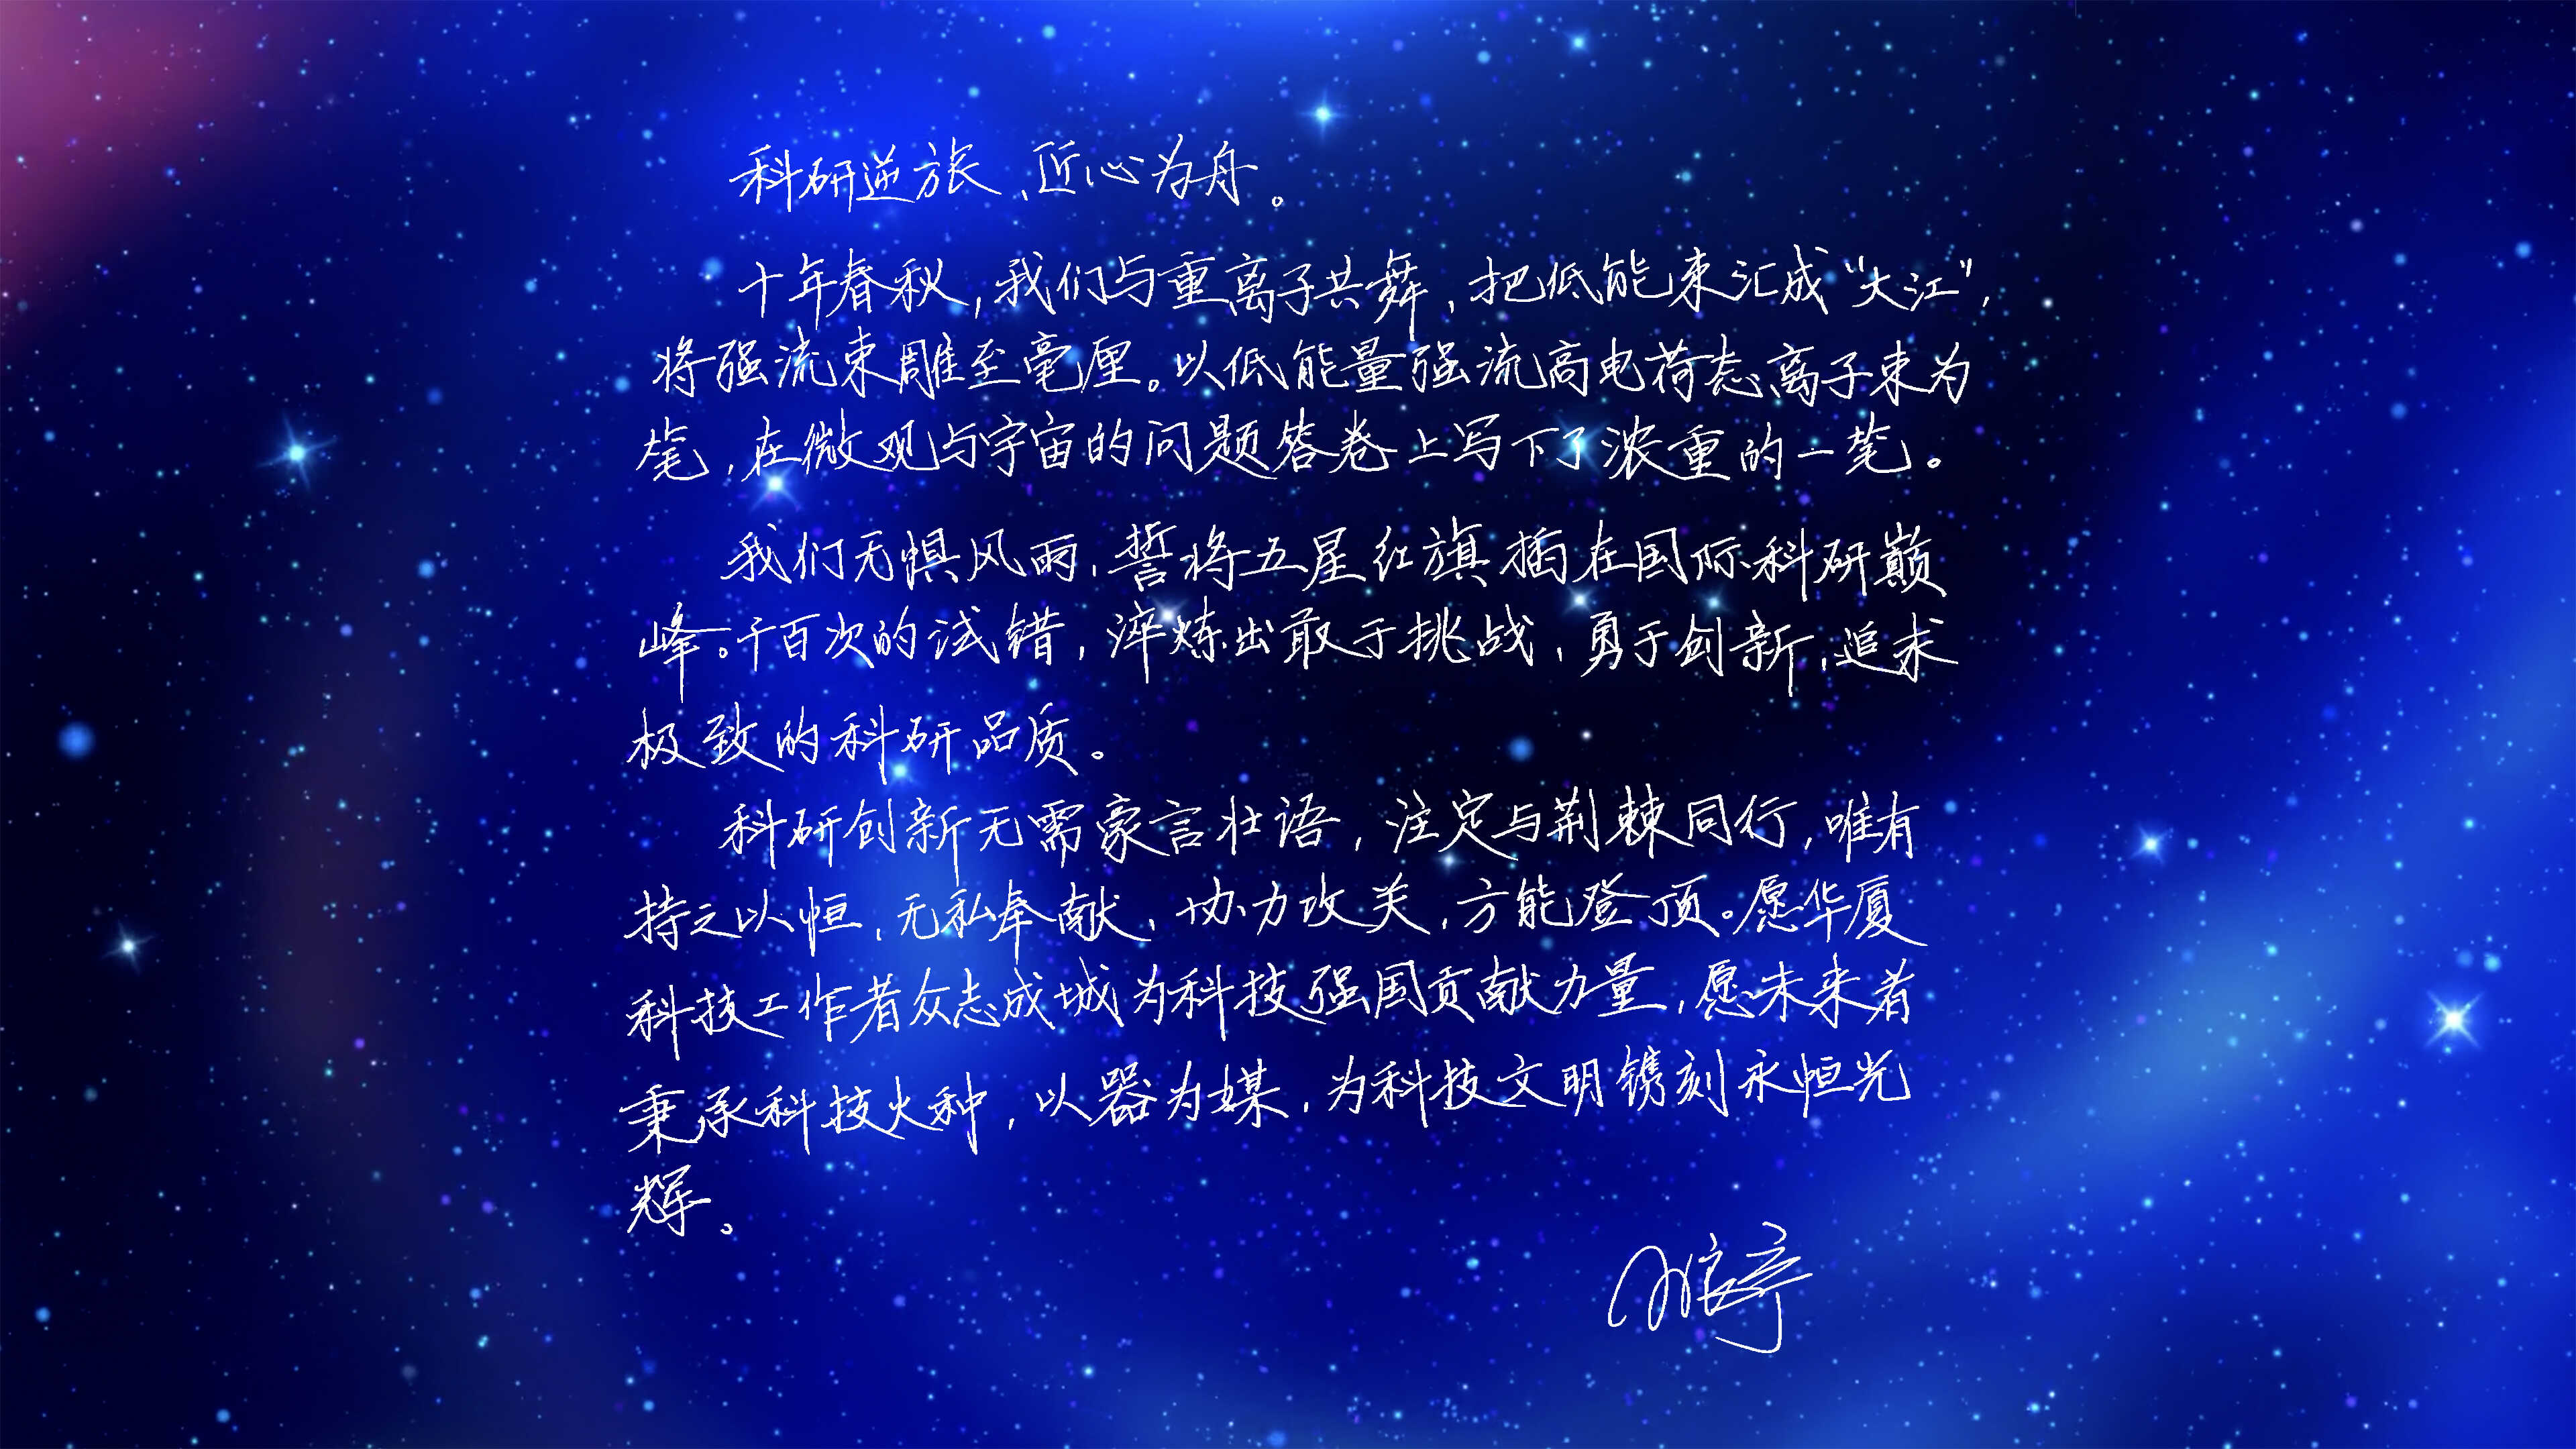 科研逆旅，匠心为舟。
十年春秋，我们与重离子共舞，把低能束汇成“大江”，
将强流束雕至毫厘。以低能量强流高电荷态离子束为
笔，在微观与宇宙的问题答卷上写下了浓重的一笔。
我们无惧风雨，誓将五星红旗插在国际科研巅
峰。千百次的试错，淬炼出敢于挑战，勇于创新，追求
极致的科研品质。
科研创新无需豪言壮语，注定与荆棘同行，唯有
持之以恒，无私奉献，协力攻关，方能登顶。愿华厦
科技工作者众志成城为科技强国贡献力量，愿未来者
秉承科技火种，以器为媒，为科技文明镌刻永恒光
辉。